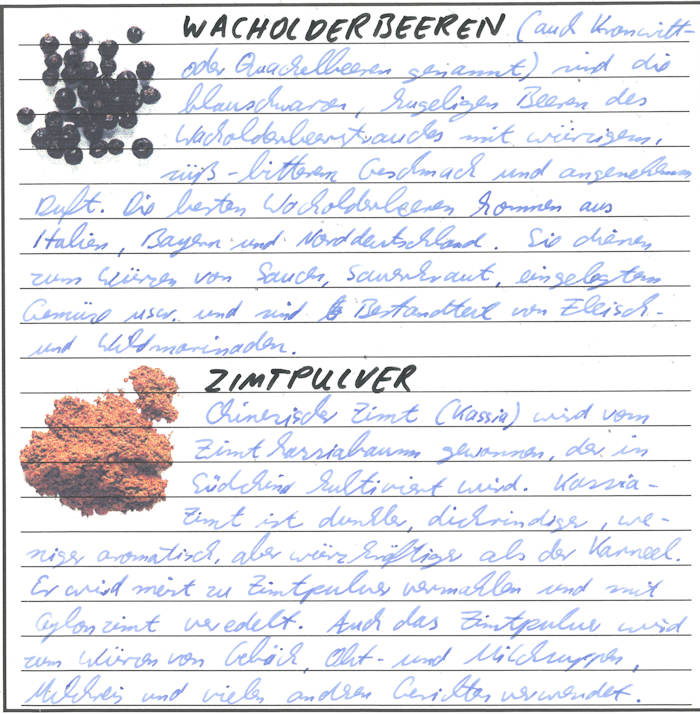 WACHOLDERBEEREN (auch Kronwitt-
oder Quackelbeeren genannt) sind die
blauschwarzen, kugeligen Beeren des
Wacholderbeerstrauches mit würzigem,
süß-bitterem Geschmack und angenehmem
Duft. Die besten Wacholderbeeren kommen aus
Italien, Bayern und Norddeutschland. Sie dienen
zum Würzen von Saucen, Sauerkraut, eingelegtem
Gemüse usw. und sind Bestandteil von Fleisch-
und Wildmarinaden.
ZIMTPULVER
Chinesischer Zimt (Kassia) wird vom
Zimtkassiabaum gewonnen, der in
Südchina kultiviert wird. Kassia-
Zimt ist dunkler, dickrindiger, we-
niger aromatisch, aber würzkräftiger als der Kaneel.
Er wird meist zu Zimtpulver vermahlen und mit
Ceylonzimt veredelt. Auch das Zimtpulver wird
zum Würzen von Gebäck, Obst- und Milchsuppen,
Milchreis und vielen anderen Gerichten verwendet.